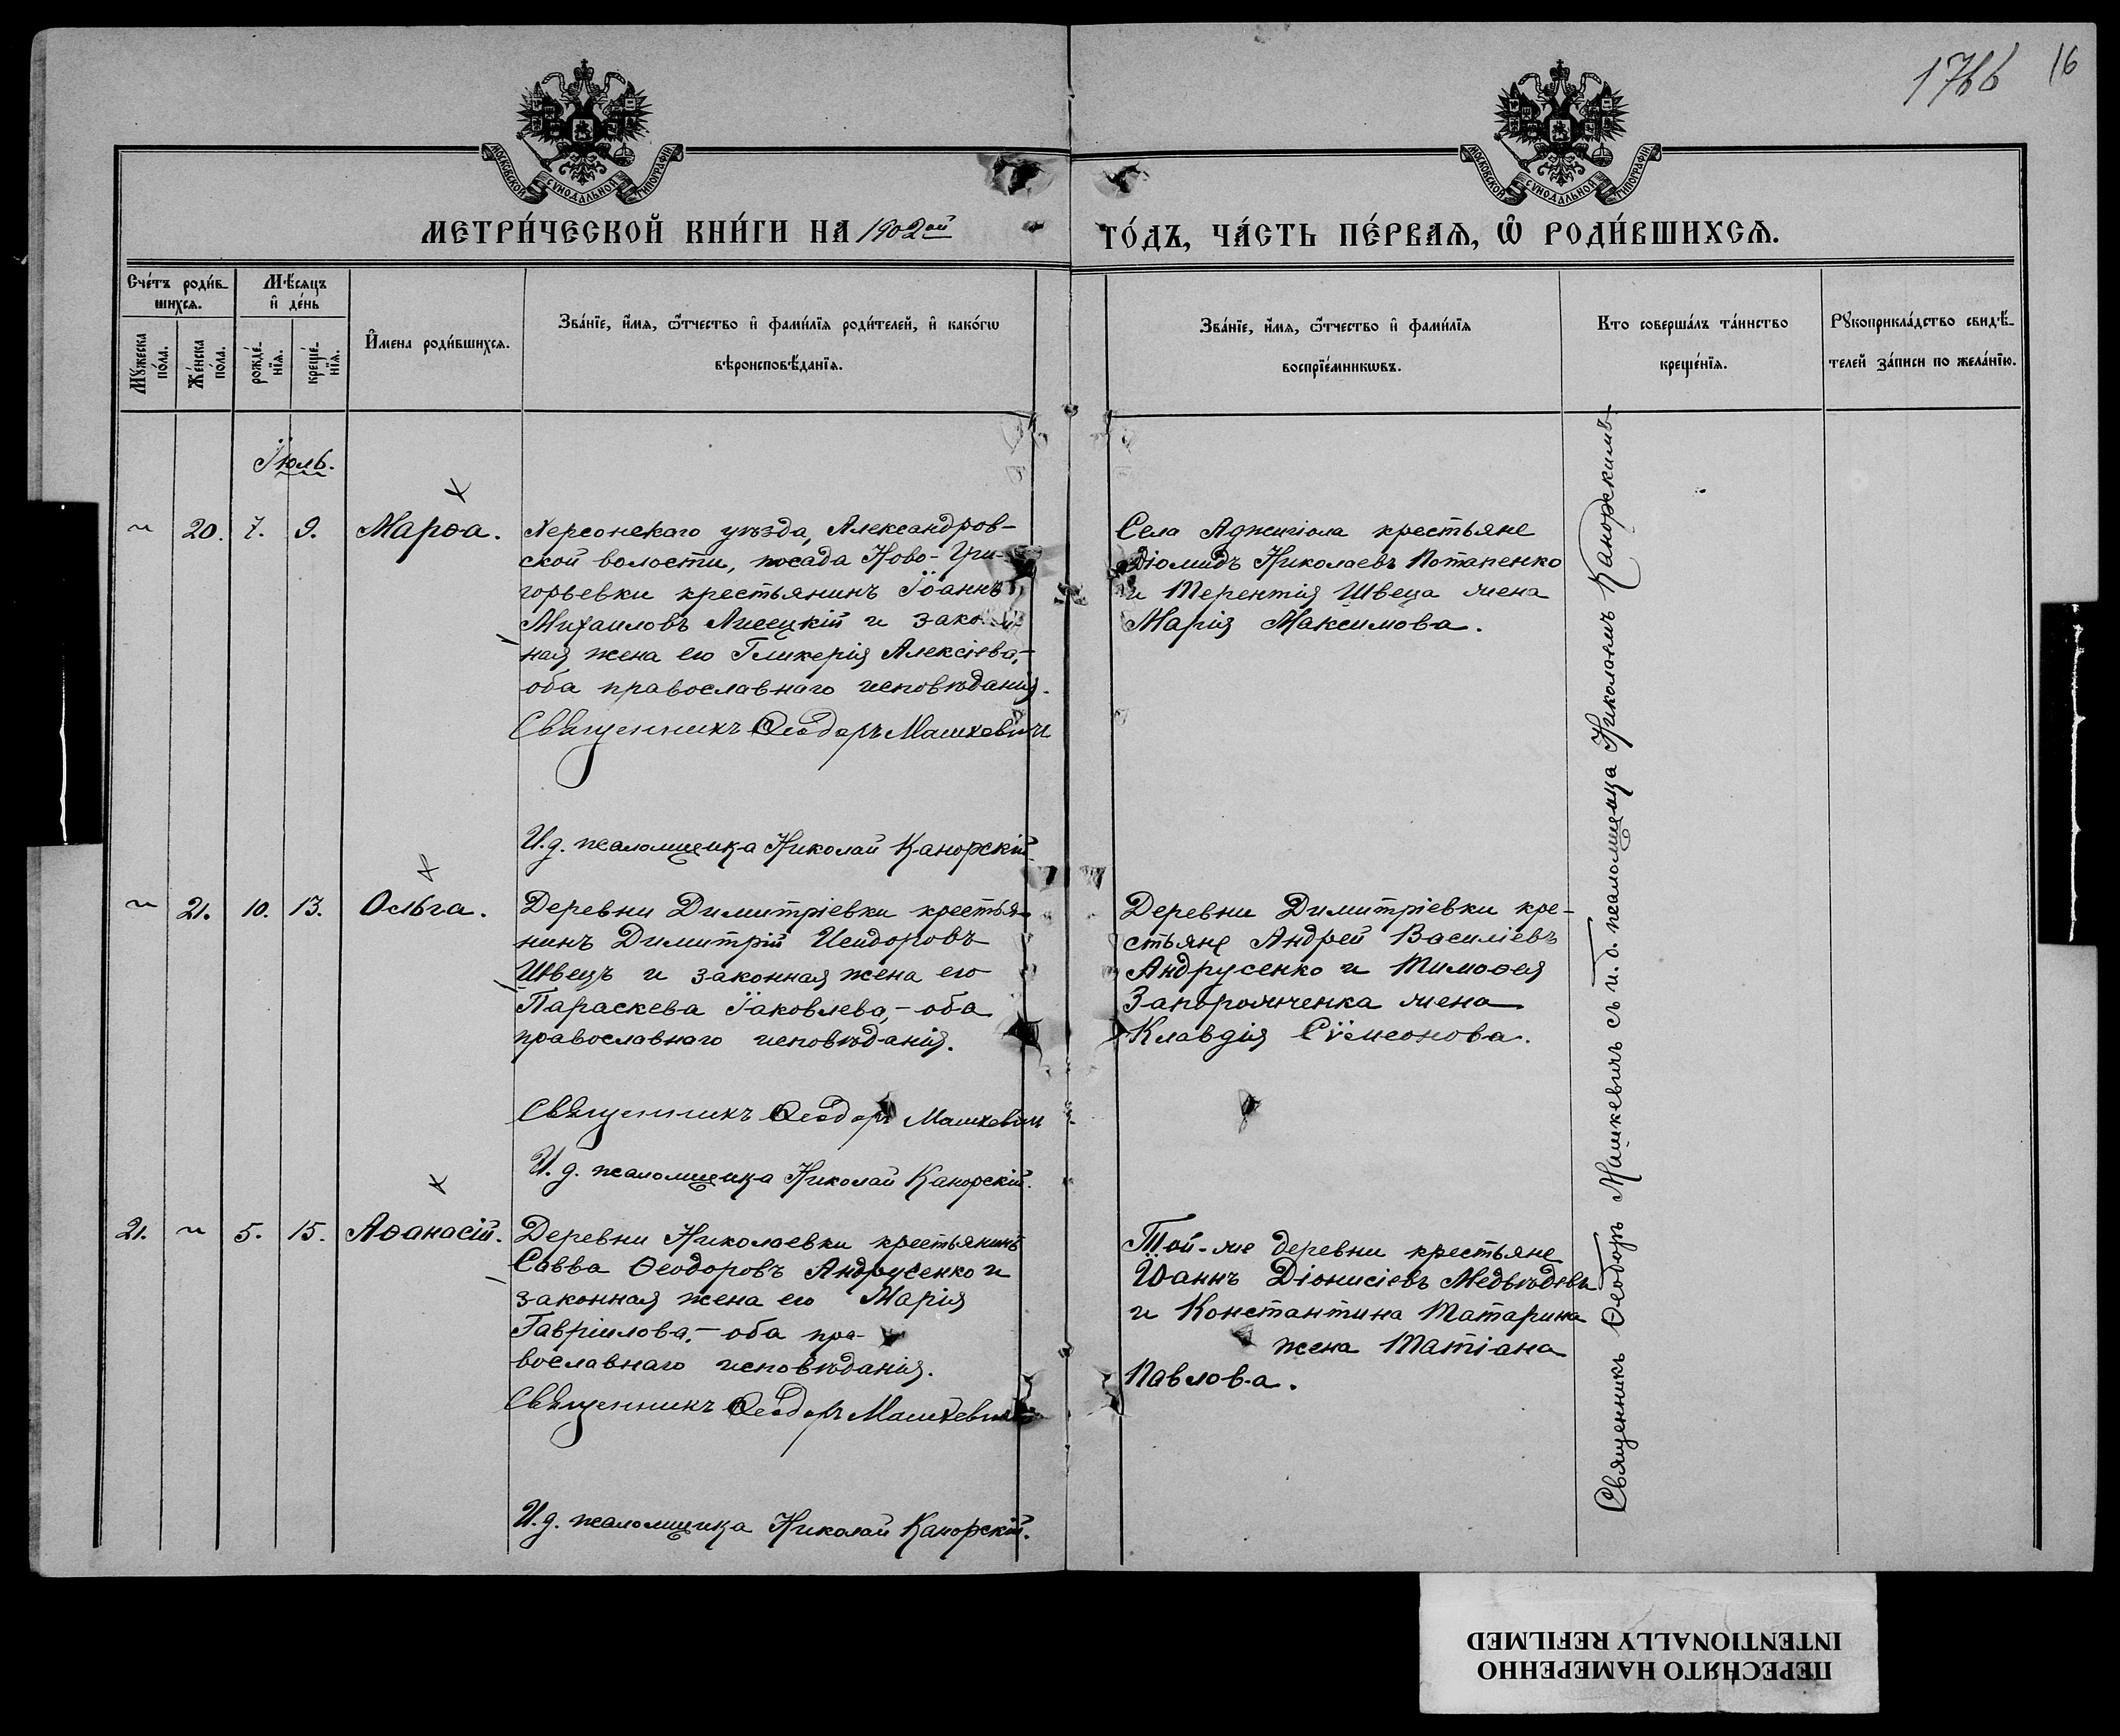 1766
16
МОСКОВСКОЙ СУНОДАЛЬНОЙ ТИПОГРАФІИ
МОСКОВСКОЙ СУНОДАЛЬНОЙ ТИПОГРАФІИ
МЕТРИ́ЧЕСКОЙ КНИ́ГИ НА 1902ой
ГО́ДЪ, ЧА́СТЬ ПЕ́РВАѦ, Ѡ҆ РОДИ́ВШИХСѦ.
Сче́тъ роди́в-
шихсѧ.
Мѣ́сѧцъ
и҆ де́нь
Мꙋ́жеска
по́ла.
Же́нска
по́ла.
рожде́-
нїѧ.
креще́-
нїѧ.
И҆́мена роди́вшихсѧ.
Зва́нїе, и҆́мѧ, ѻ҆́тчество и҆ фами́лїѧ роди́телей, и҆ како́гѡ
вѣроисповѣ́данїѧ.
Зва́нїе, и҆́мѧ, ѻ҆́тчество и҆ фами́лїѧ
воспрїе́мникѡвъ.
Кто соверша́лъ та́инство
креще́нїѧ.
Рꙋкоприкла́дство свидѣ́-
телей за́писи по жела́нїю.
Іюль.
20. 7. 9. Марѳа.
Херсонскаго уѣзда, Александров-
ской волости, посада Ново-Гри-
горьевки крестьянинъ Іоаннъ
Михаиловъ Лисецкій и закон-
ная жена его Гликерія Алексіева,-
оба православнаго исповѣданія.
Священникъ Ѳеодоръ Машкевичъ
И.д. псаломщика Николай Канорскій.
Села Аджигіола крестьяне
Діомидъ Николаевъ Потапенко
и Терентія Швеца жена
Марія Максимова.
21. 10. 13. Ольга.
Деревни Димитріевки крестья-
нинъ Димитрій Исидоровъ
Швецъ и законная жена его
Параскева Іаковлева,- оба
православнаго исповѣданія.
Священникъ Ѳеодоръ Машкевичъ
И.д. псаломщика Николай Канорскій.
Деревни Димитріевки кре-
стьяне Андрей Василіевъ
Андрусенко и Тимоѳея
Запорожченка жена
Клавдія Сѵмеонова.
21. 5. 15. Аѳанасій.
Деревни Николаевки крестьянинъ
Савва Ѳеодоровъ Андрусенко и
законная жена его Марія
Гавріилова,- оба пра-
вославнаго исповѣданія.
Священникъ Ѳеодоръ Машкевичъ
И.д. псаломщика Николай Канорскій.
Той-же деревни крестьяне
Іоаннъ Діонисіевъ Медвѣдевъ
и Константина Татарина
жена Татіана
Павлова.
Священникъ Ѳеодоръ Машкевичъ съ и.д. псаломщика Николаемъ Каноржскимъ
ПЕРЕСНЯТО НАМЕРЕННО
INTENTIONALLY REFILMED